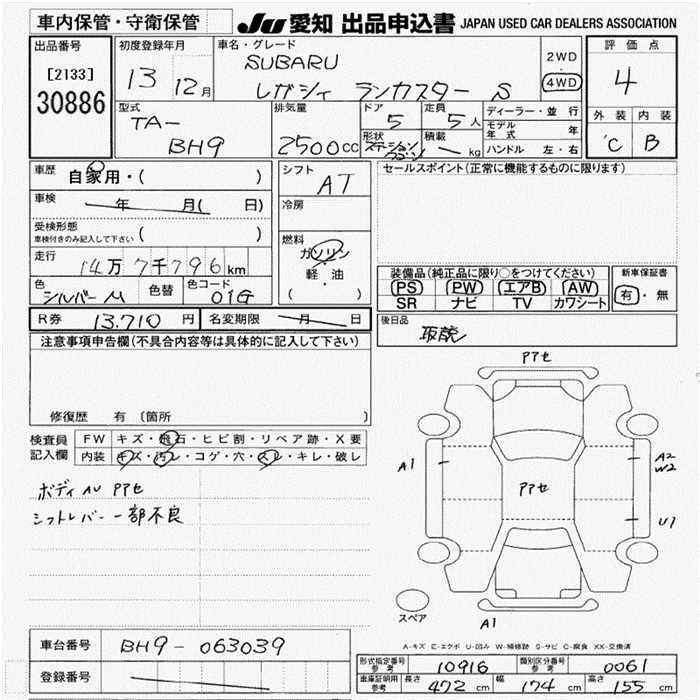 車内保管・守衛保管 JU 愛知 出品申込書 JAPAN USED CAR DEALERS ASSOCIATION
出品番号 初度登録年月 車名・グレード 評価点
[2133] 13 12月 SUBARU 2WD 4
30886 レガシィ ランカスター S 4WD
型式 排気量 ドア 定員 ディーラー・並行 外装 内装
TA- 5 5人 モデル年式 年 C B
BH9 2500cc 形状 ステーションワゴン 積載 ー kg ハンドル 左・右
車歴 自家用・( ) シフト AT セールスポイント(正常に機能するものに限ります)
車検 年 月( 日) 冷房
受検形態
車検付きのみ記入して下さい ( )
燃料
ガソリン
軽・油
( )
走行 14万7千796km
装備品(純正品に限り○をつけてください) 新車保証書
PS PW エアB AW 有・無
SR ナビ TV カワシート
色 シルバーM 色替 色コード 01G
R券 13.710円 名変期限 月 日 後日品
取説
注意事項申告欄(不具合内容等は具体的に記入して下さい)
修復歴 有 〔箇所 〕
検査員記入欄 FW キズ・飛石・ヒビ割・リペア跡・X要
内装 キズ・汚レ・コゲ・穴・スレ・キレ・破レ
ボディAU Pアセ
シフトレバー一部不良
Pアセ
A1
A2
W2
Pアセ
U1
スペア
A1
A-キズ E-エクボ U-凹み W-補修跡 S-サビ C-腐食 XX-交換済
車台番号 BH9-063039
登録番号
形式指定番号 参考 10916 類別区分番号 参考 0061
車庫証明用 参考 長さ 472cm 幅 174cm 高さ 155cm